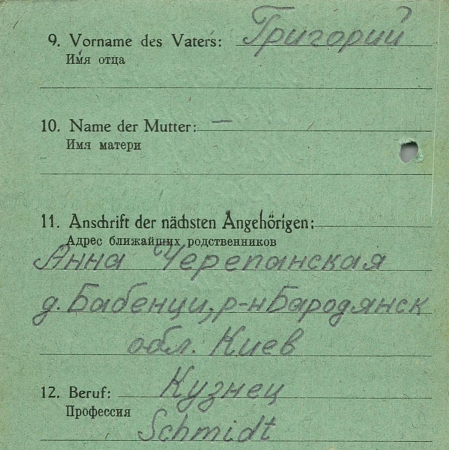 9. Vorname des Vaters: Григорий
Имя отца
10. Name der Mutter: —
Имя матери
11. Anschrift der nächsten Angehörigen:
Адрес ближайших родственников
Анна Черепанская
д. Бабенци, р-н Бародянск
обл. Киев
12. Beruf: Кузнец
Профессия
Schmidt